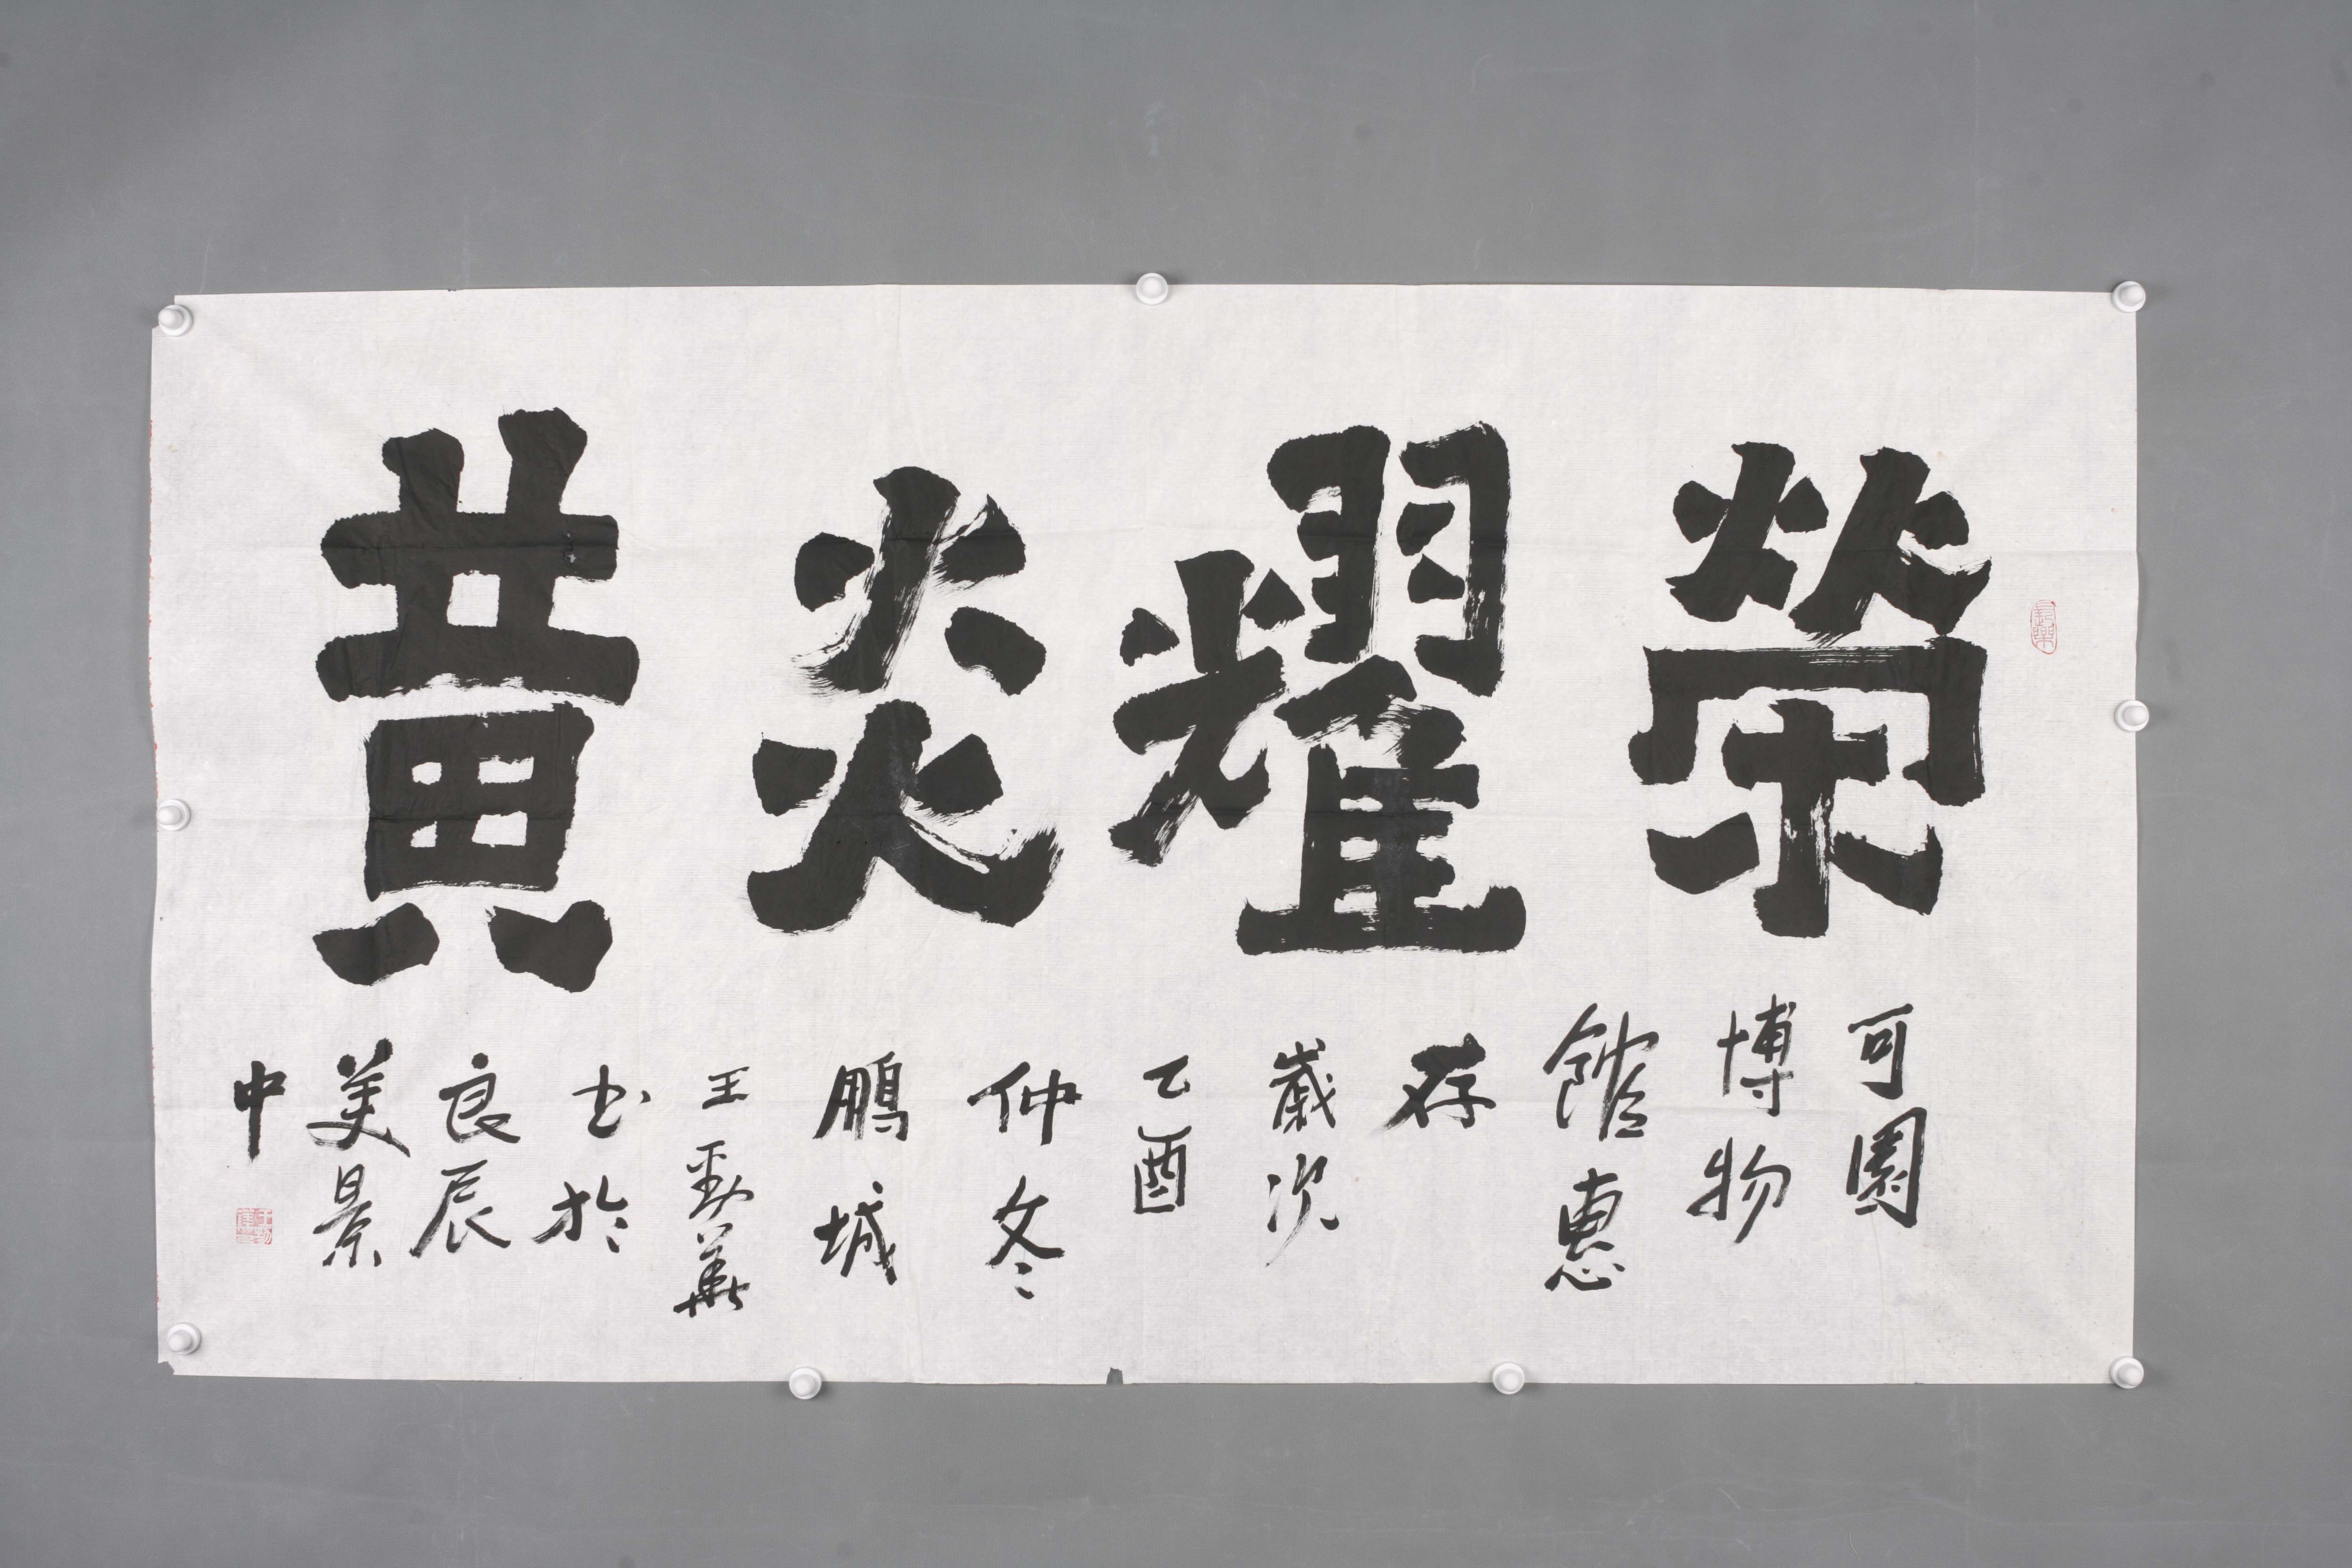 榮耀炎黄
可園
博物
館惠
存
歲次
乙酉
仲冬
鵬城
王勁華
书於
良辰
美景
中